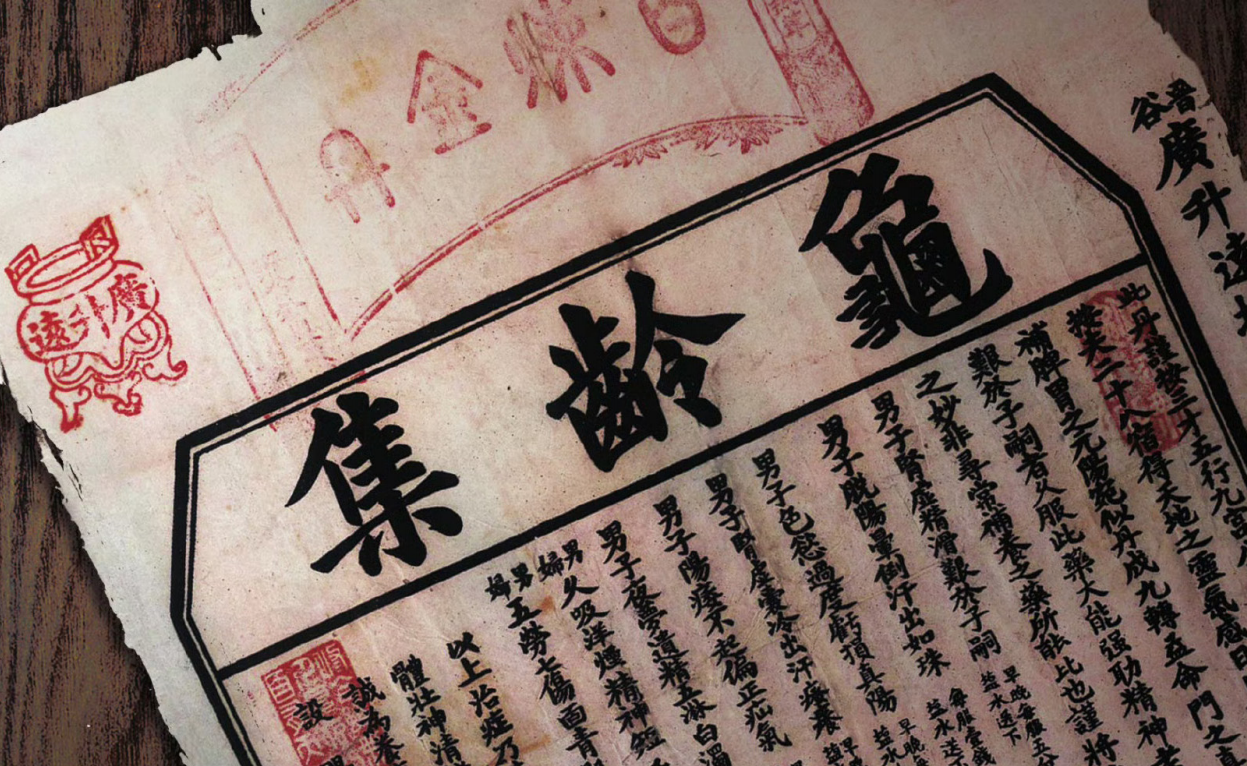 煉金丹
廣升遠
晉谷廣升遠
龜齡集
此丹護世三才五行九宮
按天二十八宿得天地之靈氣感
補脾胃之元陽宛似丹成九轉益命門之真
艱於子嗣者久服此藥大能强助精神老
之妙非尋常補養之藥所能比也謹將
男子腎虛精滑艱於子嗣 早晚每服五分 鹽水送下
男子脫陽暈倒汗出如珠 每服壹錢 鹽水送下
男子色慾過度虧損真陽 早晚 鹽水
男子腎虛囊冷出汗癢
男子陽痿不起偏正疝氣
男子夜夢遺精五淋白濁
男婦久吸洋煙精神短
男婦五勞七傷百
以上治症乃
體壯神清
誠為養
設